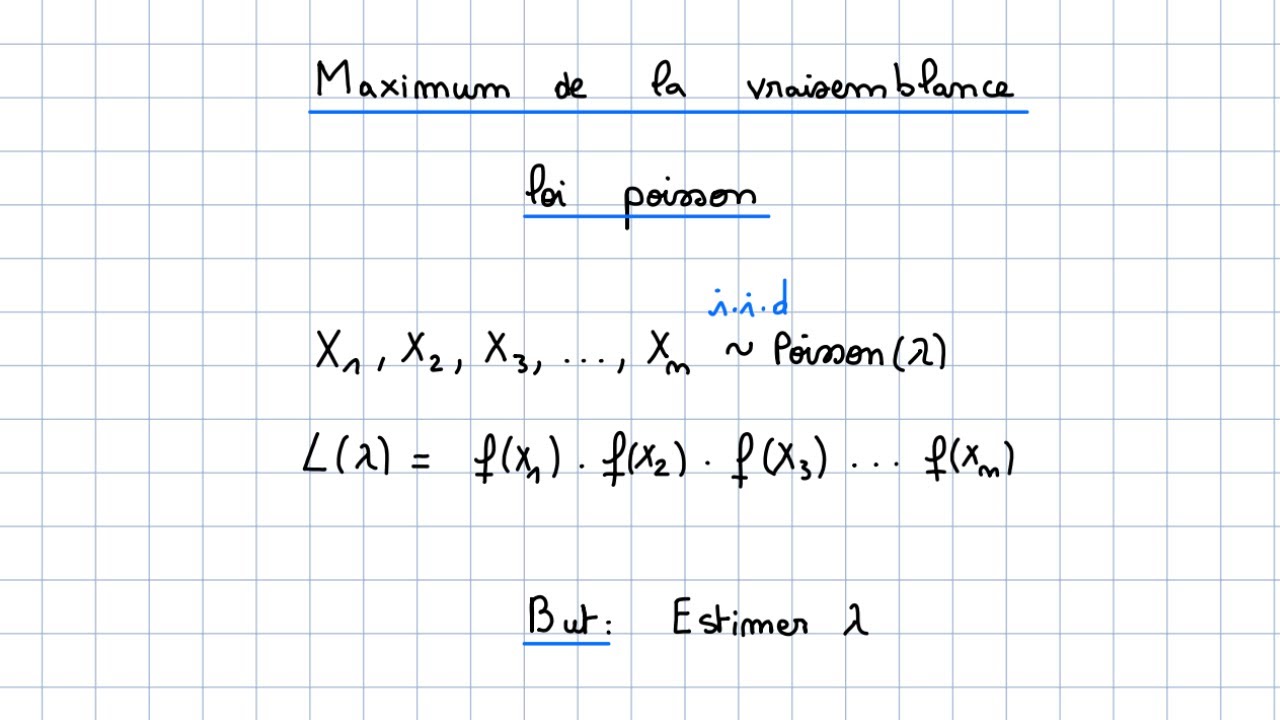 Maximum de la vraisemblance
loi poisson
i.i.d
X₁, X₂, X₃, ..., Xₙ ~ Poisson(λ)
L(λ) = f(x₁) . f(x₂) . f(x₃) ... f(xₙ)
But: Estimer λ